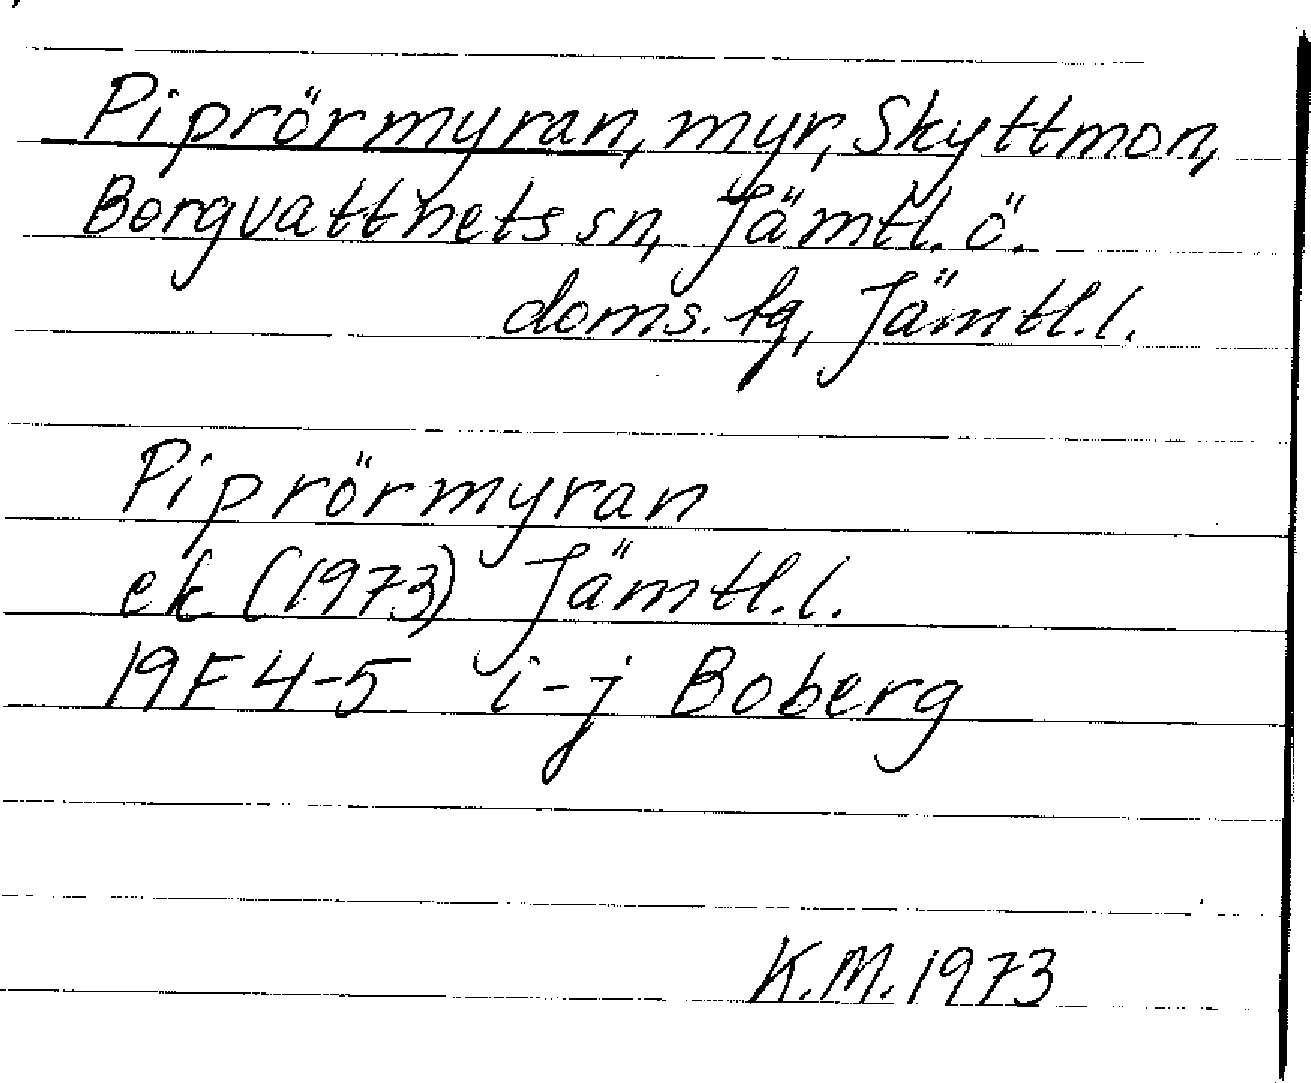 Piprörmyran, myr, Skyttmon,
Borgvattnets sn, Jämtl. ö.
doms. tg, Jämtl. l.
Piprörmyran
ek (1973) Jämtl. l.
19F 4-5 i-j Boberg
K.M. 1973